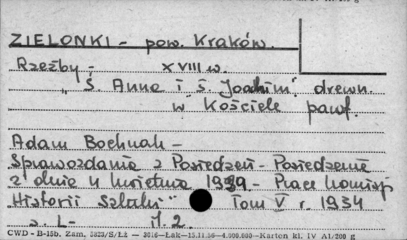 ZIELONKI - pow. Kraków.
Rzeźby - XVIII w.
"Ś. Anna i ś. Joahim" drewn.
w Kościele paraf.
Adam Bochnak -
Sprawozdania z Posiedzeń - Posiedzenie
z dnia 4 kwietnia 1929 - Prace Komisji
Historii Sztuki" Tom V r. 1934
z. I - 
CWD - B-15b, Zam. 3823/S/Lż - 3016 - Łak - 15.11.56 - 4.000.000 - Karton kl. IV A1/200 g